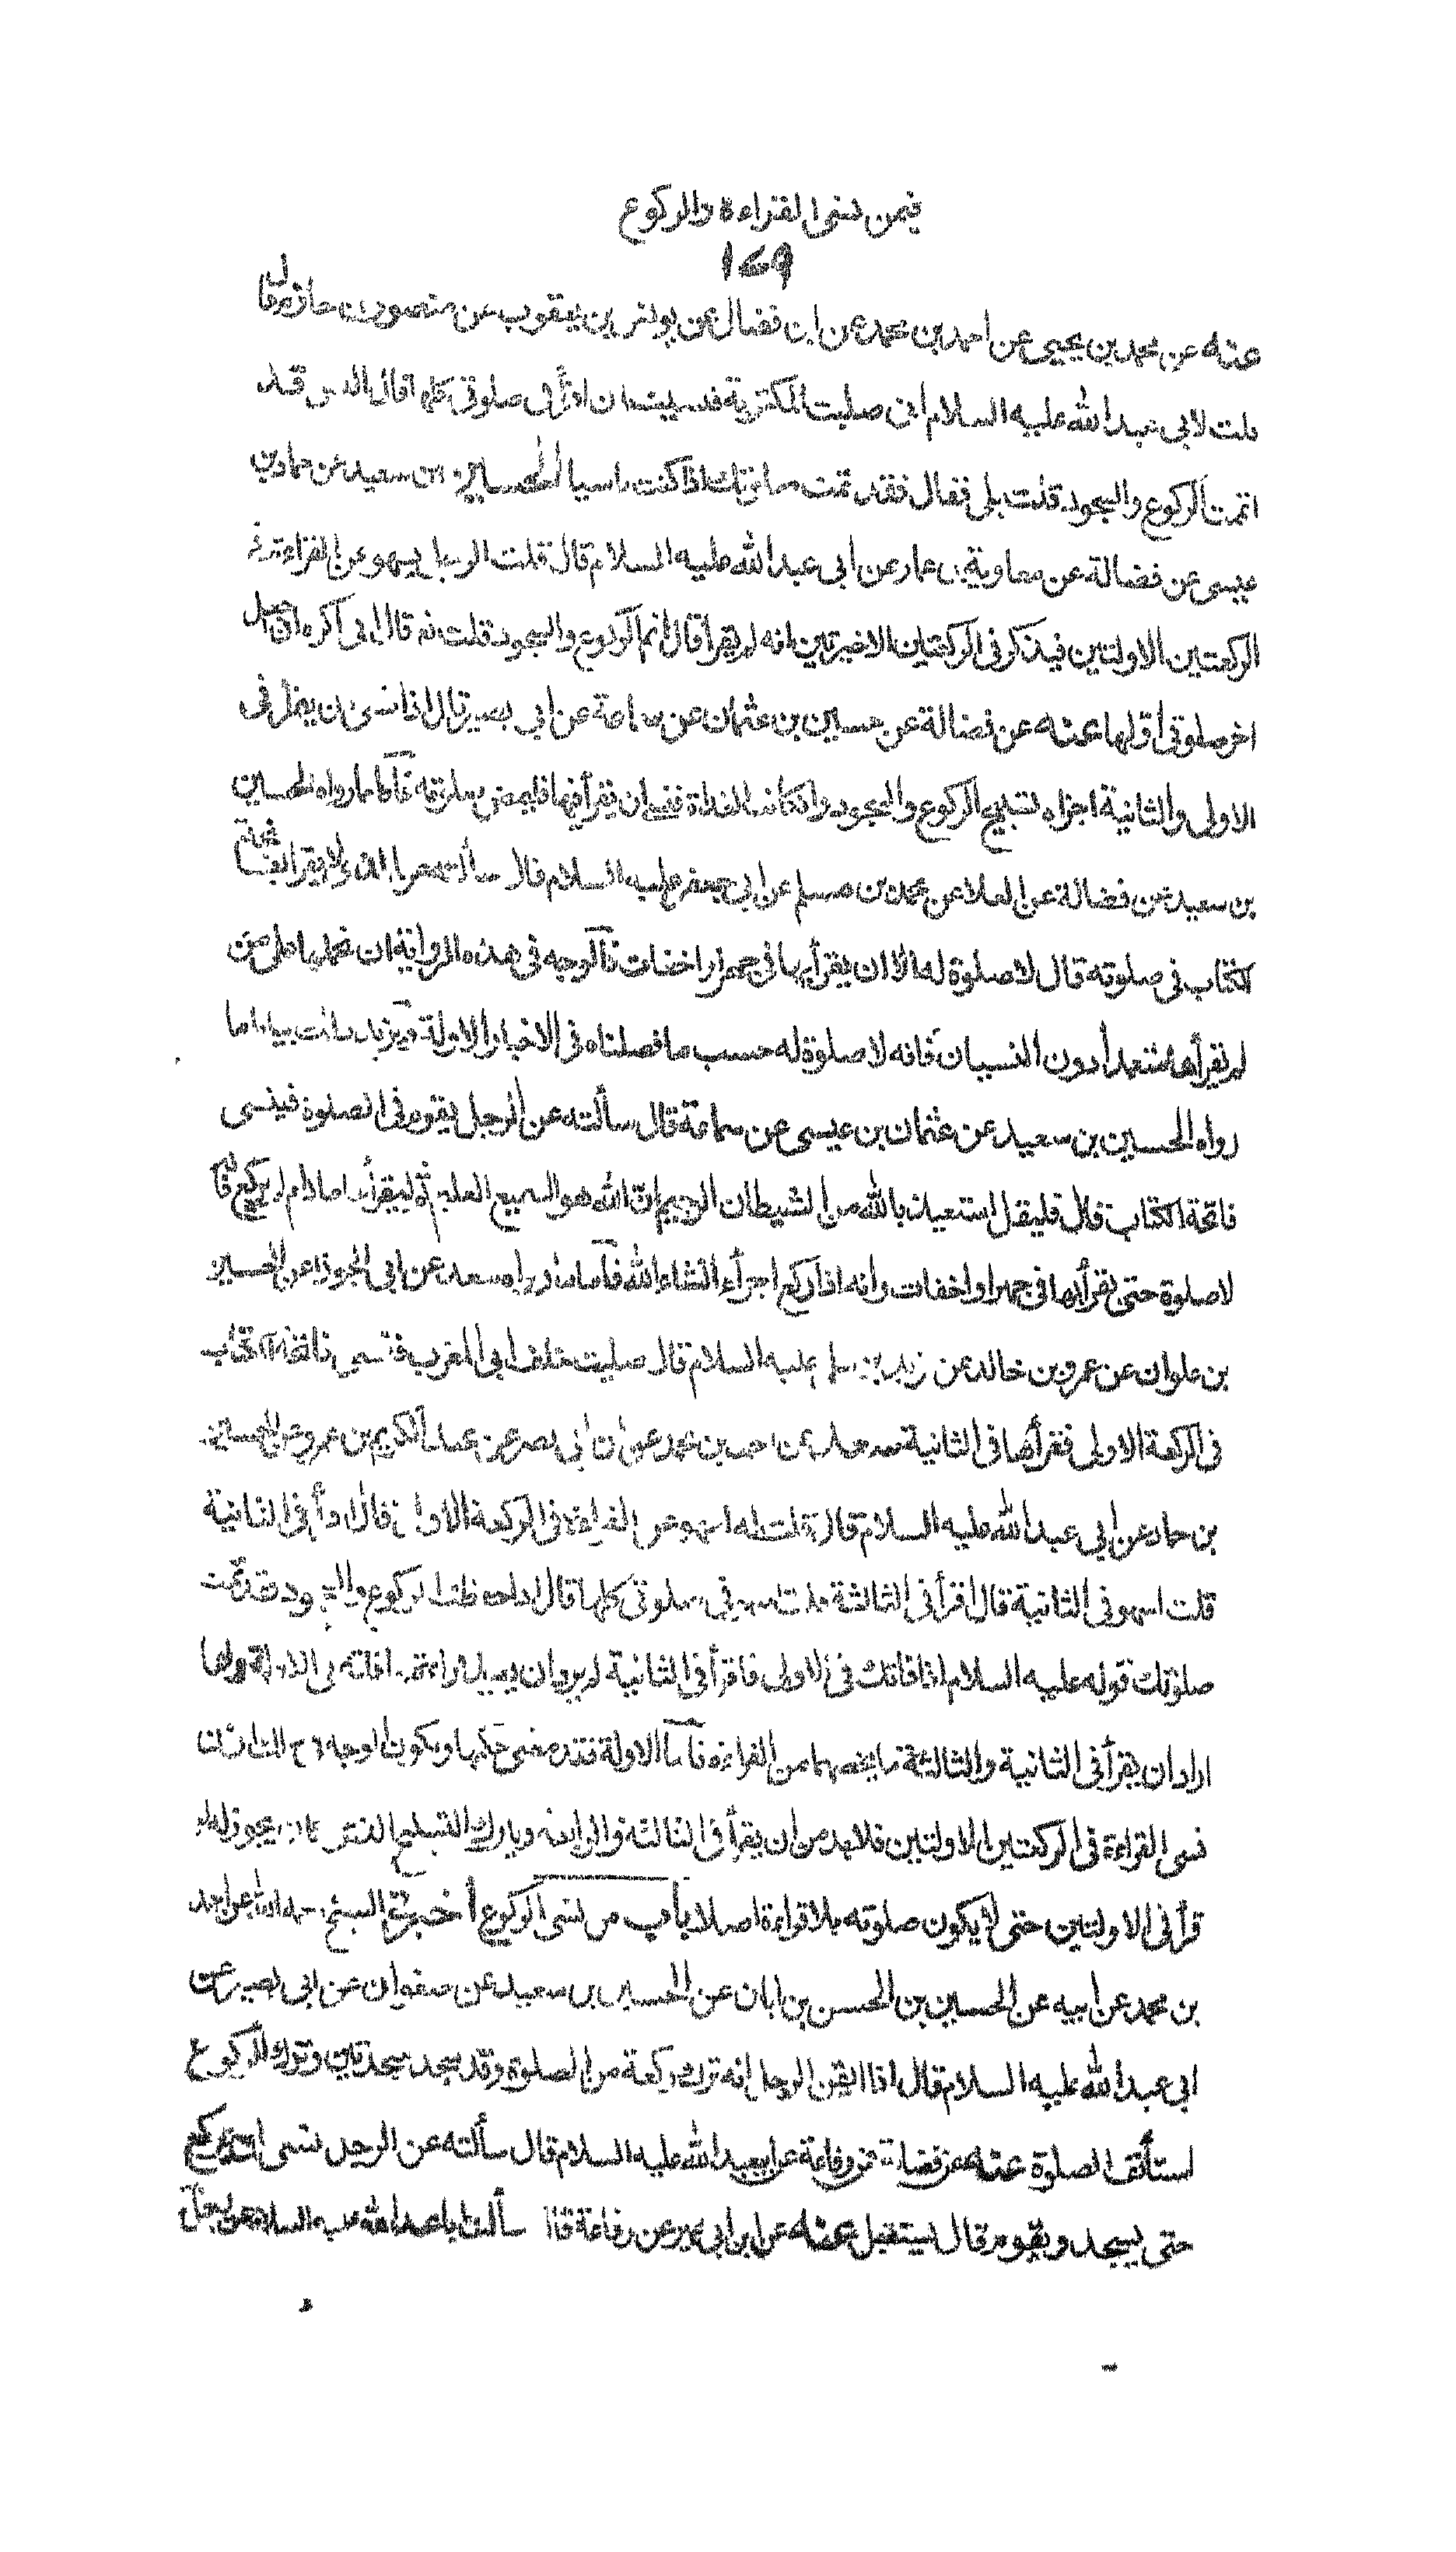 فيمن نسى القراءة والركوع
١٧٩
عنه عن محمد بن يحيى عن احمد بن محمد عن ابن فضال عن يونس بن يعقوب عن منصور بن حازم قال
قلت لابى عبد الله عليه السلام انى صليت المكتوبة فنسيت ان اقرأ فى صلوتى كلها فقال اليس قد
اتممت الركوع والسجود قلت بلى فقال فقد تمت صلوتك اذا كنت ناسيا الحسين بن سعيد عن حماد بن
عيسى عن فضالة عن معاوية بن عمار عن ابى عبد الله عليه السلام قال قلت الرجل يسهو عن القراءة فى
الركعتين الاولتين فيذكر فى الركعتين الاخيرتين انه لم يقرأ قال اتم الركوع والسجود قلت نعم قال انى اكره ان اجعل
اخر صلوتى اولها عنه عن فضالة عن حسين بن عثمان عن سماعة عن ابى بصير قال اذا نسى ان يقرأ فى
الاولى والثانية اجزاه تسبيح الركوع والسجود وان كانت الغداة فنسى ان يقرأ فيها فليمض فى صلوته فاما ما رواه الحسين
بن سعيد عن فضالة عن العلا عن محمد بن مسلم عن ابى جعفر عليه السلام قال سألته عن الذى لا يقرأ بفاتحة
الكتاب فى صلوته قال لا صلوة له الا ان يقرأ بها فى جهر او اخفات فالوجه فى هذه الرواية ان نحملها على من
لم يقرأها متعمدا دون النسيان فانه لا صلوة له حسب ما فصلناه فى الاخبار الاولة ويزيد ذلك بيانا ما
رواه الحسين بن سعيد عن عثمان بن عيسى عن سماعة قال سألته عن الرجل يقوم فى الصلوة فينسى
فاتحة الكتاب قال فليقل استعيذ بالله من الشيطان الرجيم ان الله هو السميع العليم ثم ليقرأها ما دام لم يركع فانه
لا صلوة حتى يقرأ بها فى جهر او اخفات وانه اذا ركع اجزأه انشاء الله فاما ما رواه سعد عن ابى الجوزا عن الحسين
بن علوان عن عمرو بن خالد عن زيد بن على عليه السلام قال صليت خلف ابى المغرب فنسى فاتحة الكتاب
فى الركعة الاولى فقرأها فى الثانية سعد عن احمد بن محمد عن ابن ابى نصر عن عبد الكريم بن عمرو عن الحسين
بن حماد عن ابى عبد الله عليه السلام قال قلت له اسهو عن القراءة فى الركعة الاولى قال اقرأ فى الثانية
قلت اسهو فى الثانية قال اقرأ فى الثالثة قلت اسهو فى صلوتى كلها قال اذا حفظت الركوع والسجود فقد تمت
صلوتك قوله عليه السلام اذا فاتك فى الاولى فاقرأ فى الثانية لم يرد ان يعيد قراءة ما فاته فى الاولة وانما
اراد ان يقرأ فى الثانية والثالثة ما يخصهما من القراءة فاما الاولة فقد مضى حكمها ويكون الوجه
نسى القراءة فى الركعتين الاولتين فلا بد من ان يقرأ فى الثالثة والرابعة ويترك التسبيح الذى كان يجوز له لو
قرأ فى الاولتين حتى لا يكون صلوته بلا قراءة اصلا باب من نسى الركوع اخبرنى الشيخ رحمه الله عن احمد
بن محمد عن ابيه عن الحسين بن الحسن بن ابان عن الحسين بن سعيد عن صفوان عن ابى بصير عن
ابى عبد الله عليه السلام قال اذا ايقن الرجل انه ترك ركعة من الصلوة وقد سجد سجدتين وترك الركوع
استأنف الصلوة عنه عن فضالة عن رفاعة عن ابى عبد الله عليه السلام قال سألته عن الرجل نسى ان يركع
حتى يسجد ويقوم قال يستقبل عنه عن ابن ابى عمير عن رفاعة قال سألت ابا عبد الله عليه السلام عن رجل